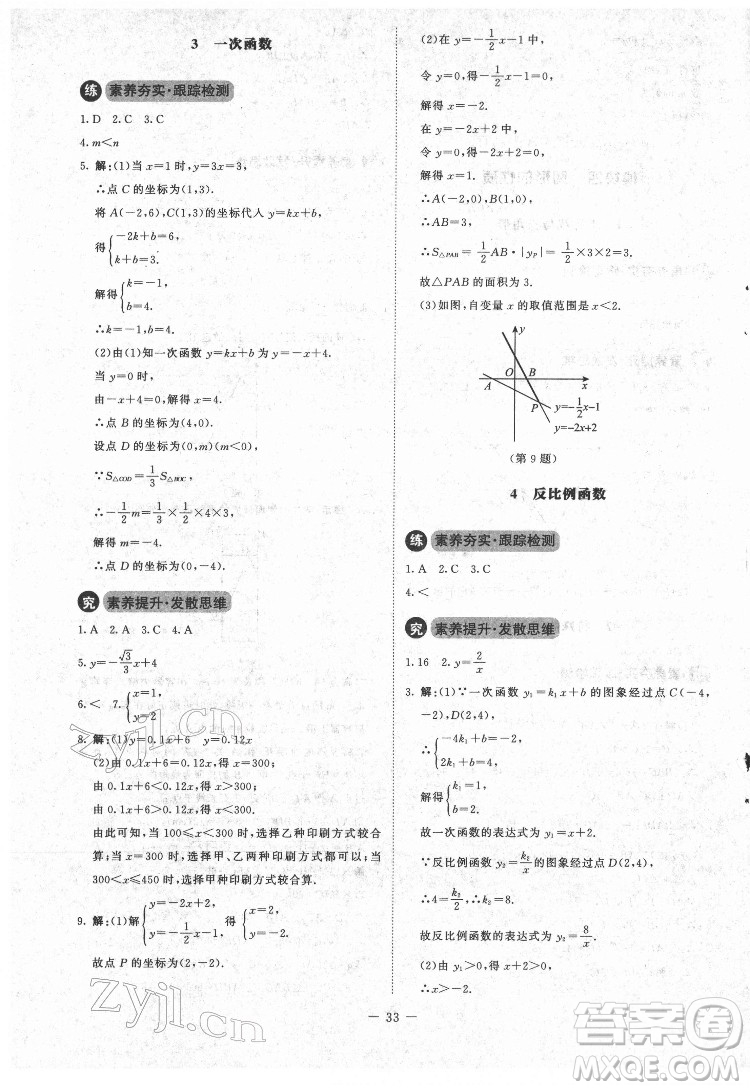 3 一次函数
练 素养夯实·跟踪检测
1. D 2. C 3. C
4. m<n
5. 解:(1)当 x=1 时,y=3x=3,
∴点 C 的坐标为(1,3).
将 A(-2,6),C(1,3)的坐标代人 y=kx+b,
得{-2k+b=6,
k+b=3.
解得{k=-1,
b=4.
∴k=-1,b=4.
(2)由(1)知一次函数 y=kx+b 为 y=-x+4.
当 y=0 时,
由-x+4=0,解得 x=4.
∴点 B 的坐标为(4,0).
设点 D 的坐标为(0,m)(m<0),
∵S△COD=1/3 S△BOC,
∴-1/2 m×1=1/3×1/2×4×3,
解得 m=-4.
∴点 D 的坐标为(0,-4).
究 素养提升·发散思维
1. A 2. A 3. C 4. A
5. y=-√3/3 x+4
6. < 7. {x=1,
y=2
8. 解:(1)y=0.1x+6 y=0.12x
(2)由 0.1x+6=0.12x,得 x=300;
由 0.1x+6>0.12x,得 x<300;
由 0.1x+6<0.12x,得 x>300.
由此可知,当 100≤x<300 时,选择乙种印刷方式较合
算;当 x=300 时,选择甲、乙两种印刷方式都可以;当
300<x≤450 时,选择甲种印刷方式较合算.
9. 解:(1)解{y=-2x+2,
y=-1/2 x-1, 得{x=2,
y=-2.
故点 P 的坐标为(2,-2).
(2)在 y=-1/2 x-1 中,
令 y=0,得-1/2 x-1=0,
解得 x=-2.
在 y=-2x+2 中,
令 y=0,得-2x+2=0,
解得 x=1.
∴A(-2,0),B(1,0).
∴AB=3,
∴S△PAB=1/2 AB·|yP|=1/2×3×2=3.
故△PAB 的面积为 3.
(3)如图,自变量 x 的取值范围是 x<2.
y
O B
A x
P
y=-1/2 x-1
y=-2x+2
(第 9 题)
4 反比例函数
练 素养夯实·跟踪检测
1. A 2. C 3. C
4. <
究 素养提升·发散思维
1. 16 2. y=2/x
3. 解:(1)∵一次函数 y₁=k₁x+b 的图象经过点 C(-4,
-2),D(2,4),
∴{-4k₁+b=-2,
2k₁+b=4.
解得{k₁=1,
b=2.
故一次函数的表达式为 y₁=x+2.
∵反比例函数 y₂=k₂/x 的图象经过点 D(2,4),
∴4=k₂/2,∴k₂=8.
故反比例函数的表达式为 y₂=8/x.
(2)由 y₁>0,得 x+2>0,
∴x>-2.
— 33 —
zyjl.cn
zyjl.cn
答案圈
MXQE.COM